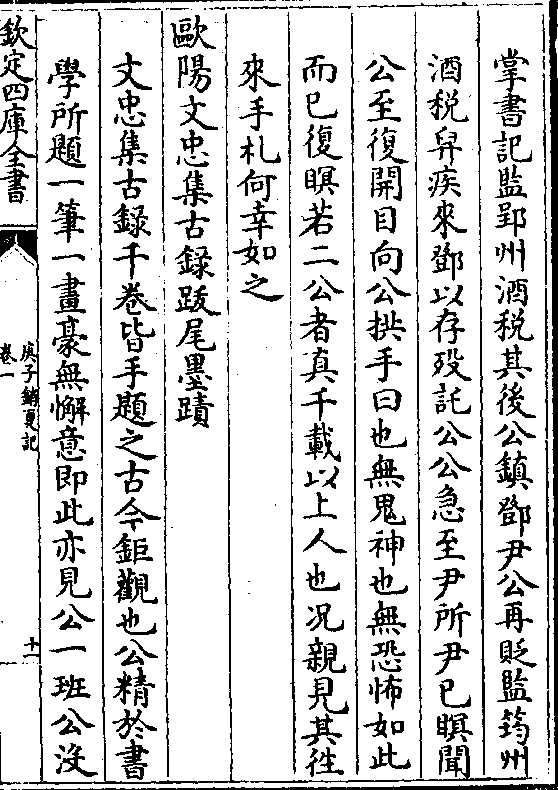 掌書記監郢州酒税其後公鎮鄧尹公再貶監筠州
酒税舁疾來鄧以存殁託公公急至尹所尹已瞑聞
公至復開目向公拱手曰也無鬼神也無恐怖如此
而已復瞑若二公者真千載以上人也况親見其徃
來手札何幸如之
歐陽文忠集古録跋尾墨蹟
文忠集古録千卷皆手題之古今鉅觀也公精於書
學所題一筆一畫豪無懈意即此亦見公一班公没
欽定四庫全書
庚子銷夏記
卷一
十一